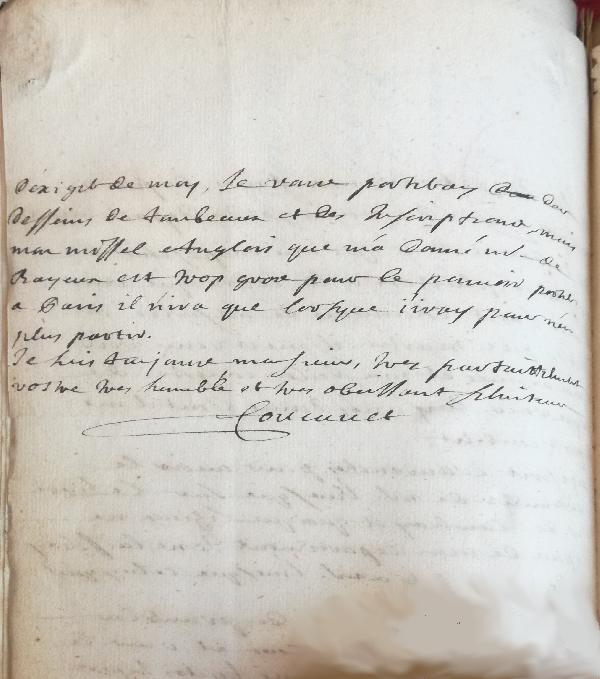 de moy, Je vous porteray des
desseins de tombeaux et des Inscriptions, mais
mon missel Anglois que m'a donné mr. de
Bayeux est trop gros pour le pouvoir porter
a Paris il n'ira que lorsque j'iray pour n'en
plus partir.
Je suis toujours monsieur, tres parfaitement
vostre tres humble et tres obeissant serviteur